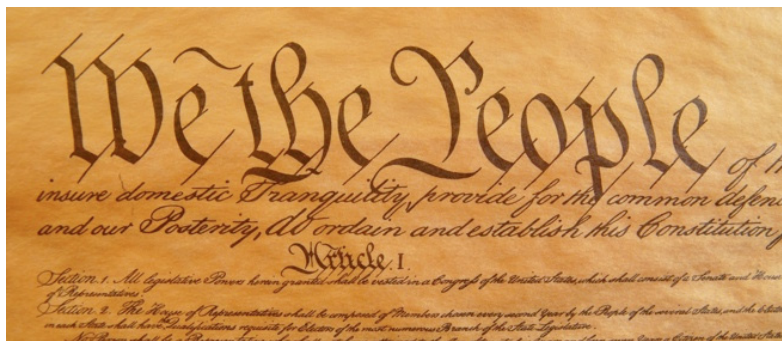 We the People of t
insure domestic Tranquility, provide for the common defen
and our Posterity, do ordain and establish this Constitution
Article. I.
Section. 1. All legislative Powers herein granted shall be vested in a Congress of the United States, which shall consist of a Senate and House
of Representatives.
Section. 2. The House of Representatives shall be composed of Members chosen every second Year by the People of the several States, and the Elect
in each State shall have the Qualifications requisite for Electors of the most numerous Branch of the State Legislature.
No Person shall be a Representative who shall not have